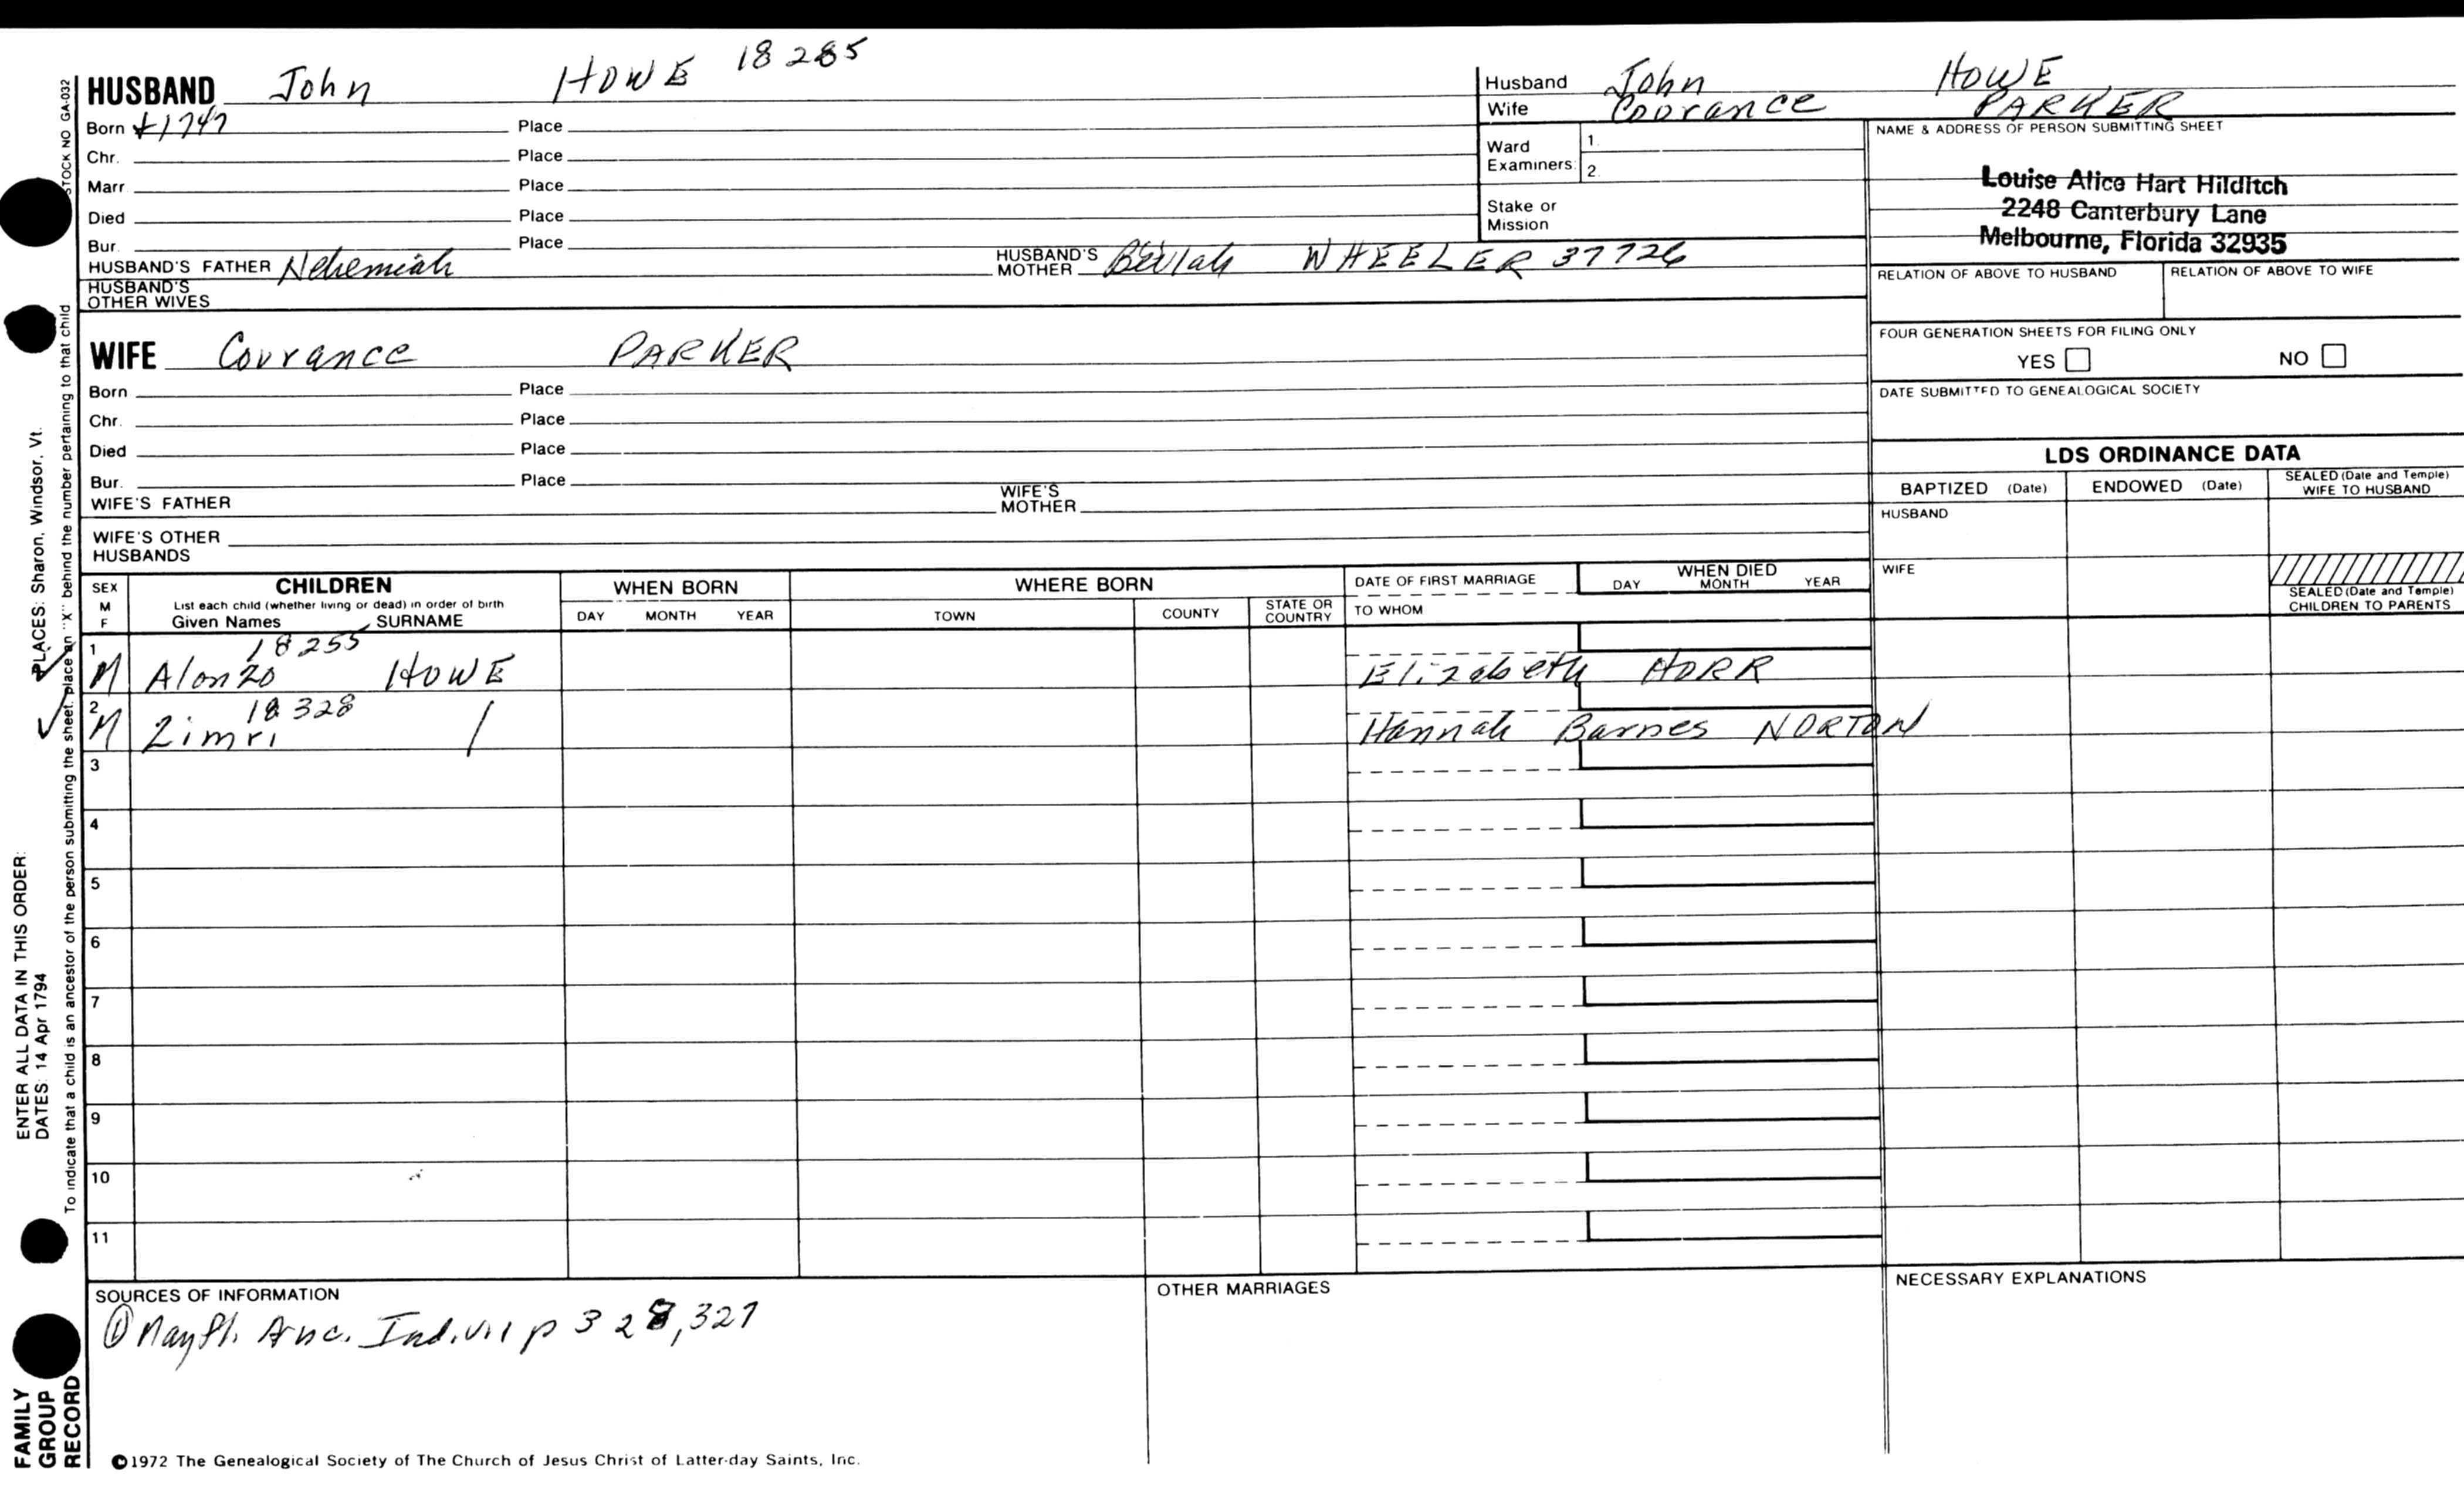 HUSBAND John HOWE 18285
Born ±1747 Place
Chr. Place
Marr. Place
Died Place
Bur. Place
HUSBAND'S FATHER Nehemiah HUSBAND'S MOTHER Beulah WHEELER 37726
HUSBAND'S OTHER WIVES
WIFE Courance PARKER
Born Place
Chr. Place
Died Place
Bur. Place
WIFE'S FATHER WIFE'S MOTHER
WIFE'S OTHER HUSBANDS
Husband John HOWE
Wife Courance PARKER
Ward Examiners: 1. 2.
Stake or Mission
NAME & ADDRESS OF PERSON SUBMITTING SHEET
Louise Alice Hart Hilditch
2248 Canterbury Lane
Melbourne, Florida 32935
RELATION OF ABOVE TO HUSBAND RELATION OF ABOVE TO WIFE
FOUR GENERATION SHEETS FOR FILING ONLY
YES NO
DATE SUBMITTED TO GENEALOGICAL SOCIETY
LDS ORDINANCE DATA
BAPTIZED (Date) ENDOWED (Date) SEALED (Date and Temple) WIFE TO HUSBAND
HUSBAND
WIFE
SEALED (Date and Temple) CHILDREN TO PARENTS
SEX M F
CHILDREN
List each child (whether living or dead) in order of birth
Given Names SURNAME
WHEN BORN
DAY MONTH YEAR
WHERE BORN
TOWN COUNTY STATE OR COUNTRY
DATE OF FIRST MARRIAGE
TO WHOM
WHEN DIED
DAY MONTH YEAR
1 18255
M Alonzo HOWE Elizabeth HORR
2 18328
M Zimri / Hannah Barnes NORTON
3
4
5
6
7
8
9
10
11
SOURCES OF INFORMATION
① Mayfl. Anc. Ind. p 328, 327
OTHER MARRIAGES
NECESSARY EXPLANATIONS
©1972 The Genealogical Society of The Church of Jesus Christ of Latter-day Saints, Inc.
FAMILY GROUP RECORD
ENTER ALL DATA IN THIS ORDER:
DATES: 14 Apr 1794
PLACES: Sharon, Windsor, Vt.
To indicate that a child is an ancestor of the person submitting the sheet, place an "X" behind the number pertaining to that child
STOCK NO GA-032